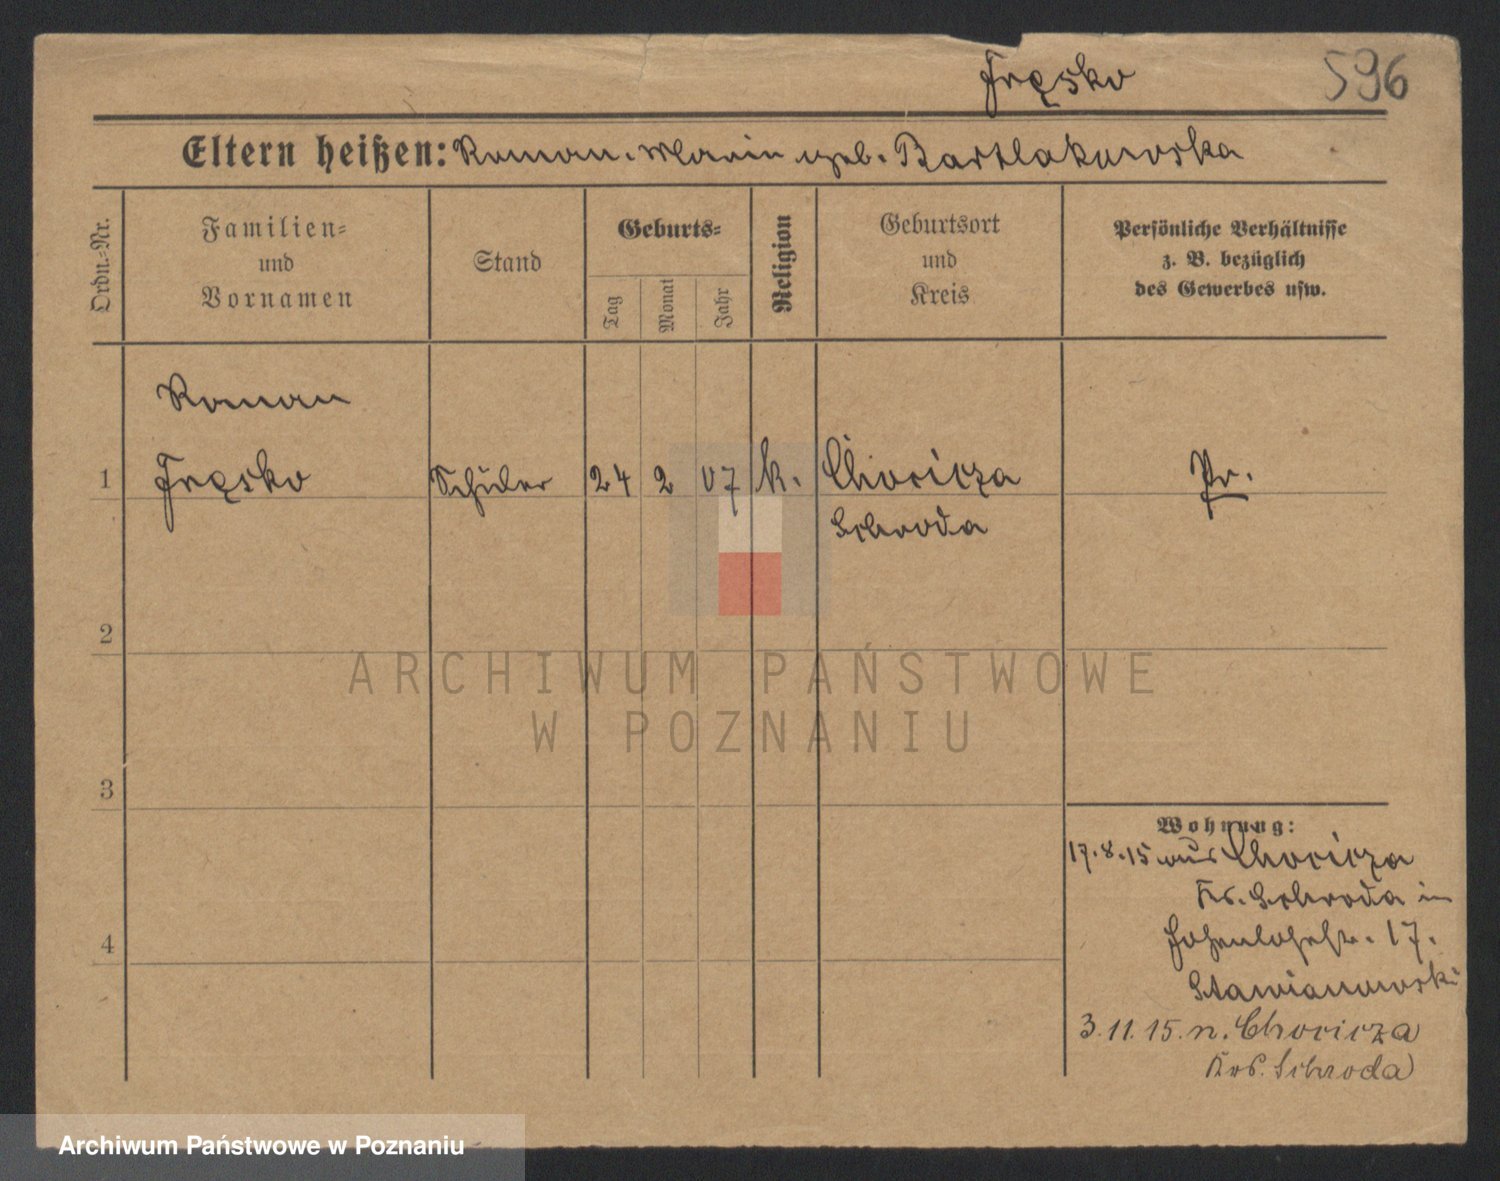 Fręsko 596
Eltern heißen: Roman. Marie geb. Bartlakowska
Ordn.=Nr.
Familien=
und
Vornamen
Stand
Geburts=
Tag
Monat
Jahr
Religion
Geburtsort
und
Kreis
Persönliche Verhältnisse
z. B. bezüglich
des Gewerbes usw.
Roman
1 Fręsko Schüler 24 2 07 k. Chocicza Pr.
Schroda
2
ARCHIWUM PAŃSTWOWE
W POZNANIU
3
Wohnung:
17.8.15 aus Chocicza
Krs. Schroda in
Hohenlohestr. 17.
4
Stawianowski
3.11.15. n. Chocicza
Krs. Schroda
Archiwum Państwowe w Poznaniu